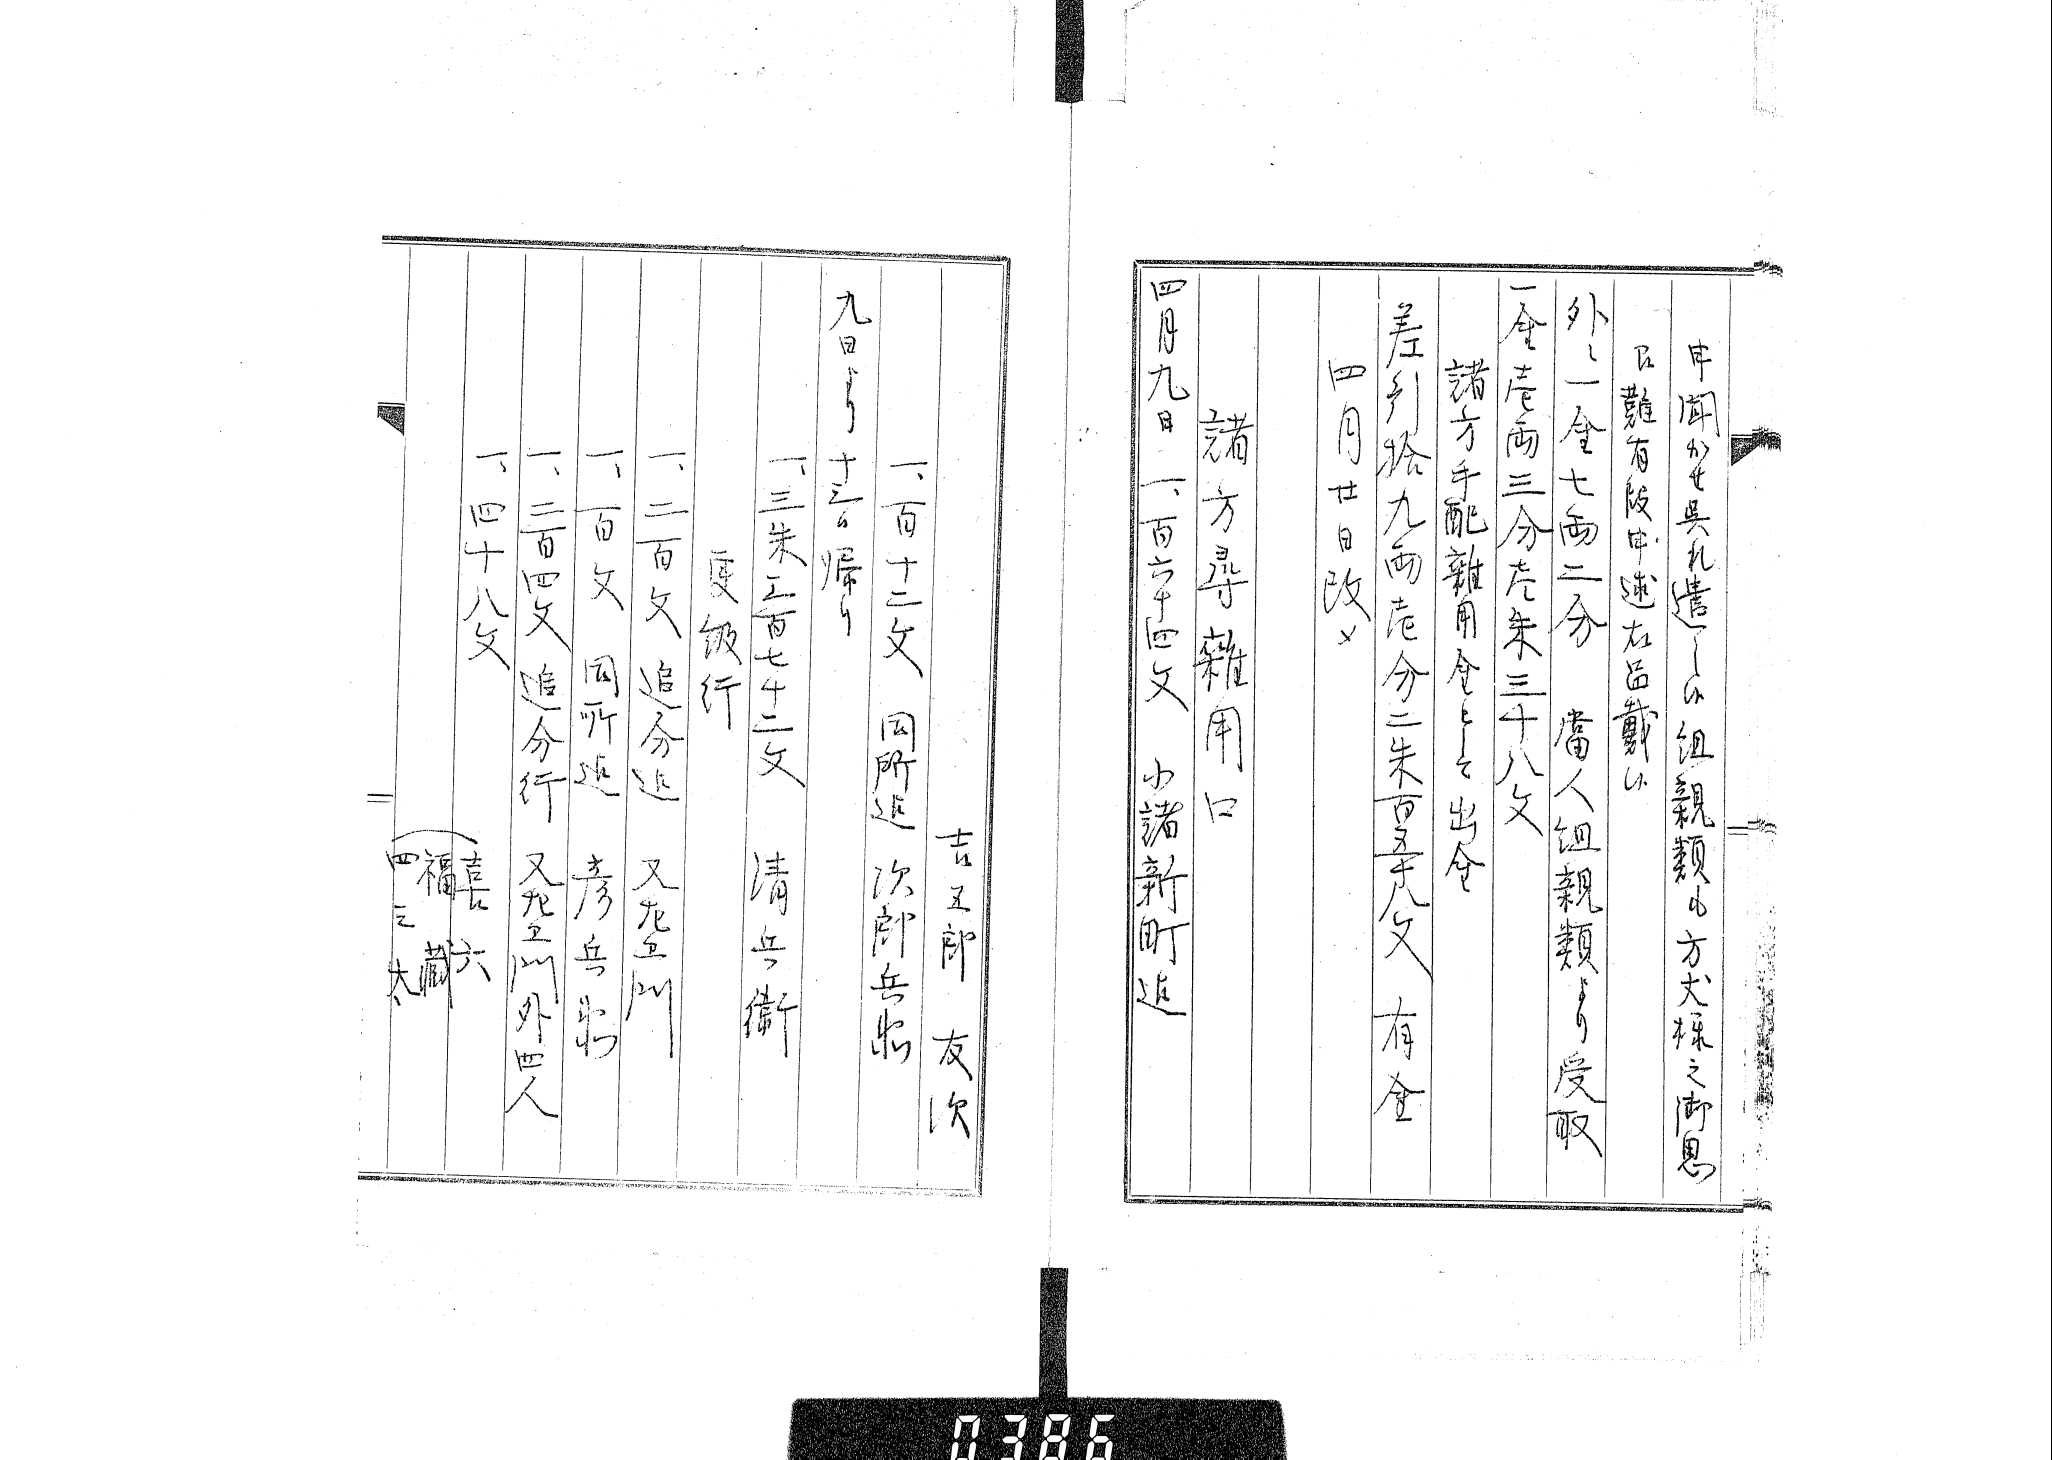 申聞かせ呉れ遣し候組親類も方丈様之御恩
旦難有段申述右函戴候
外ニ一金七両二分　當人組親類より受取
一金壱両三分壱朱三十八文
諸方手配雑用金として出金
差引拾九両壱分二朱百五十八文　有金
四月廿日改〆
諸方尋雑用口
四月九日　一、百六十四文　小諸新町迄
吉五郎　友次
一、百十二文　同所迄　次郎兵衛
九日より十三日帰り
一、三朱三百七十二文　清兵衛
飯行
一、二百文　追分迄　又左衛門
一、百文　同所迄　彦兵衛
一、三百四文　追分行　又左衛門外四人
一、四十八文
喜六
福藏
四三太
0386